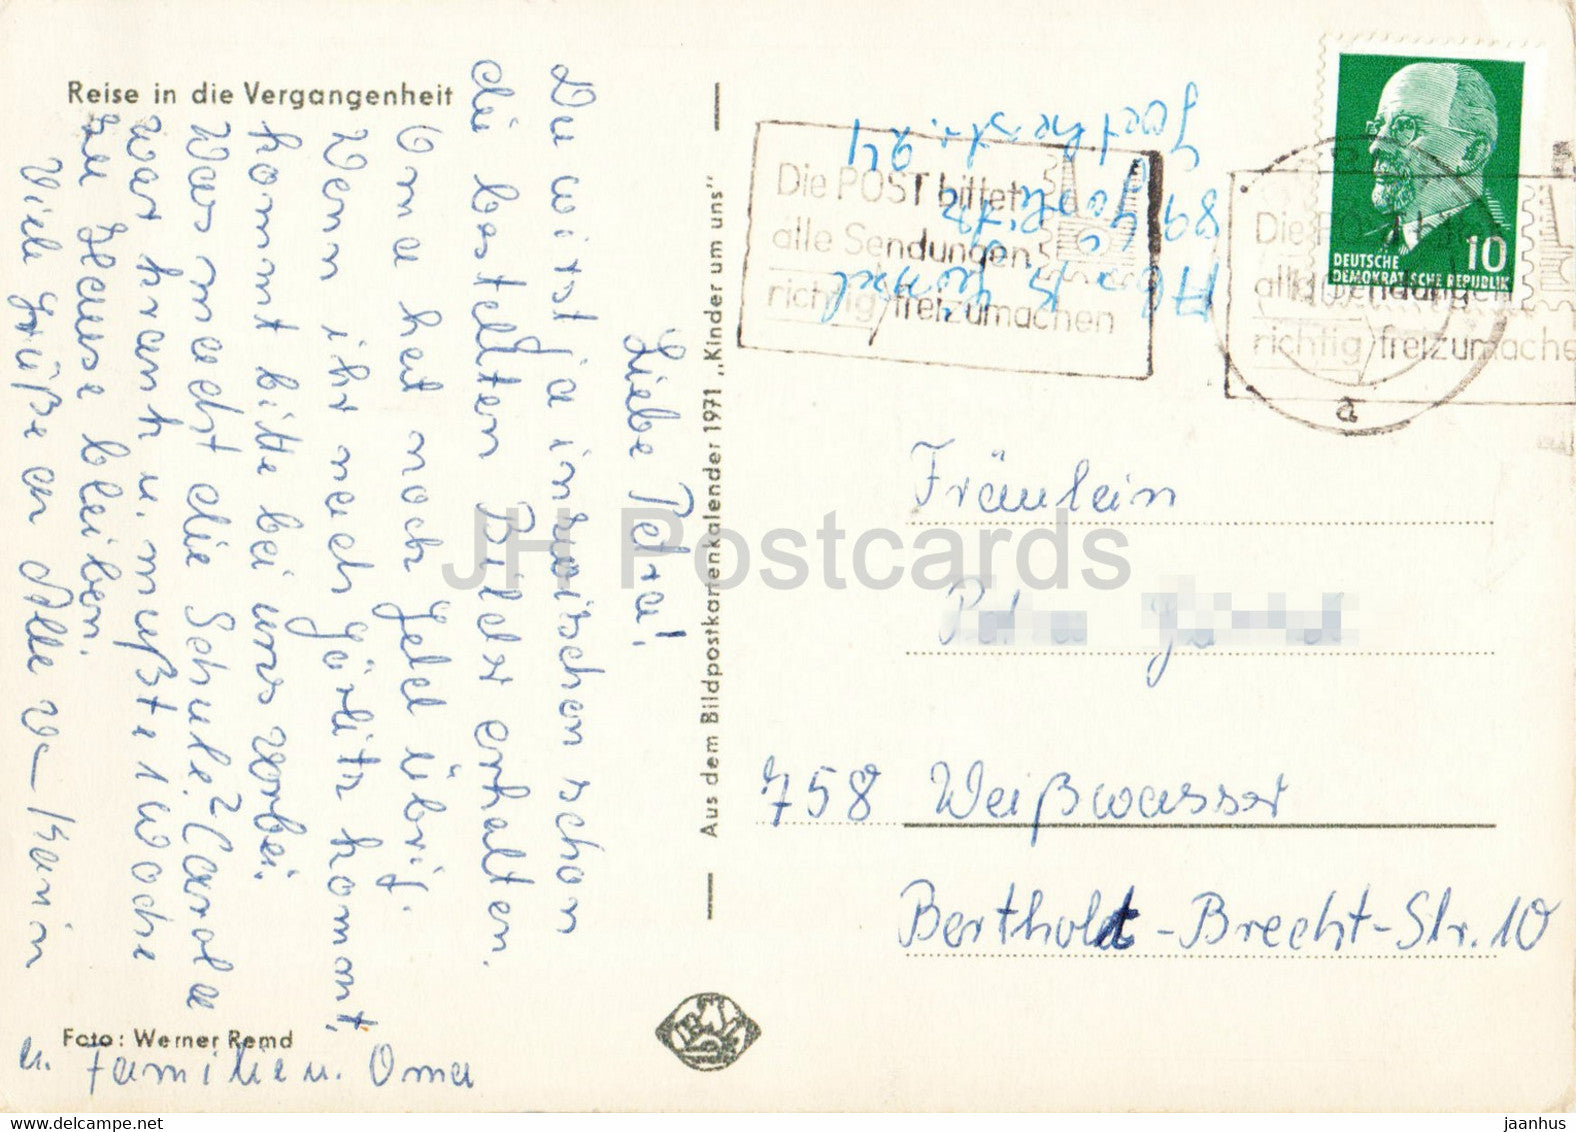 Reise in die Vergangenheit
Liebe Petra!
Du wirst ja inzwischen schon
die bestellten Bilder erhalten.
Oma hat noch Geld übrig.
Wenn ihr nach Görlitz kommt,
kommt bitte bei uns vorbei.
Was macht die Schule? Carola
war krank u. mußte 1 Woche
zu Hause bleiben.
Viele Grüße an Alle v.
Karin
u. Familie u. Oma
Foto: Werner Remd
Aus dem Bildpostkartenkalender 1971 „Kinder um uns"
Abs. K.
89 Görlitz
Goethestr.
Die POST bittet
alle Sendungen
richtig freizumachen
Die POST bittet
alle Sendungen
richtig freizumachen
a
10
DEUTSCHE
DEMOKRATISCHE REPUBLIK
Fräulein
758 Weißwasser
Berthold-Brecht-Str. 10
JH Postcards
www.delcampe.net
jaanhus